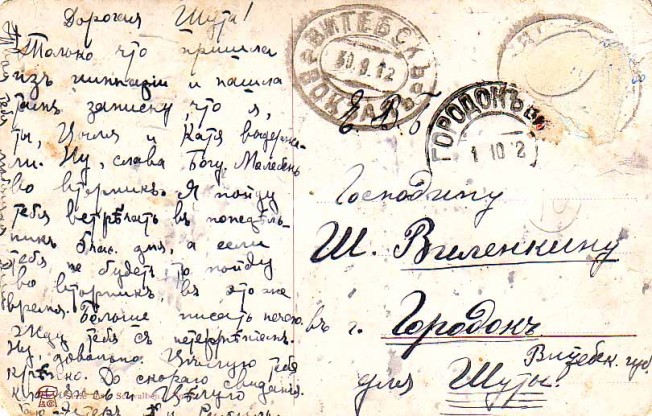 Дорогая Шута!
Только что пришла
изъ гимназiи и нашла
тамъ записку, что я,
ты, Циля и Катя выдержа-
ли. Ну, слава Богу. Молебенъ
во вторникъ. Я пойду
тебя встрѣчать въ понедѣль-
никъ дня, а если
тебя не будетъ, то пойду
во вторникъ, въ это же
время. Больше писать нечего.
Жду тебя съ нетерпѣнiем.
Ну, довольно. Цѣлую тебя
крѣпко. До скораго свиданiя.
Цѣлую
ВИТЕБСКЪ
30.9.12
ВОКЗАЛЪ
ГОРОДОКЪ
1 10 12
Е. В. б
Господину
Ш. Виленкину
въ г. Городокъ
Витебск. губ.
для Шуты